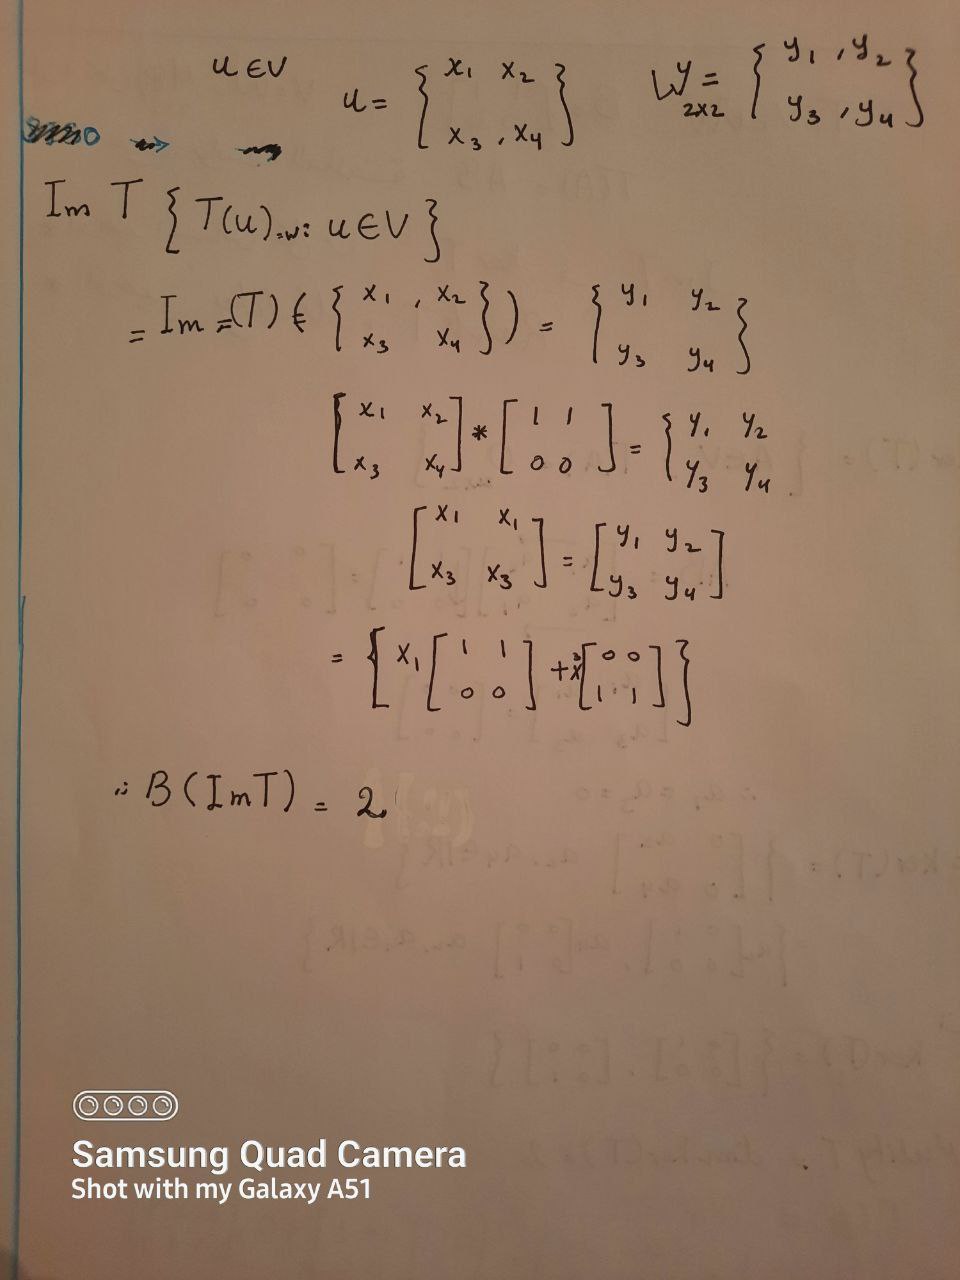 u ∈ V u = { x₁ x₂ x₃ , x₄ } W y = 2x2 { y₁ , y₂ y₃ , y₄ }
Im T { T(u)=w: u ∈ V }
= Im = (T) ( { x₁ , x₂ x₃ x₄ } ) = { y₁ y₂ y₃ y₄ }
[ x₁ x₂ x₃ x₄ ] * [ 1 1 0 0 ] = { y₁ y₂ y₃ y₄
[ x₁ x₁ x₃ x₃ ] = [ y₁ y₂ y₃ y₄ ]
= { x₁ [ 1 1 0 0 ] + x₃ [ 0 0 1 1 ] }
∴ B (Im T) = 2
Samsung Quad Camera
Shot with my Galaxy A51